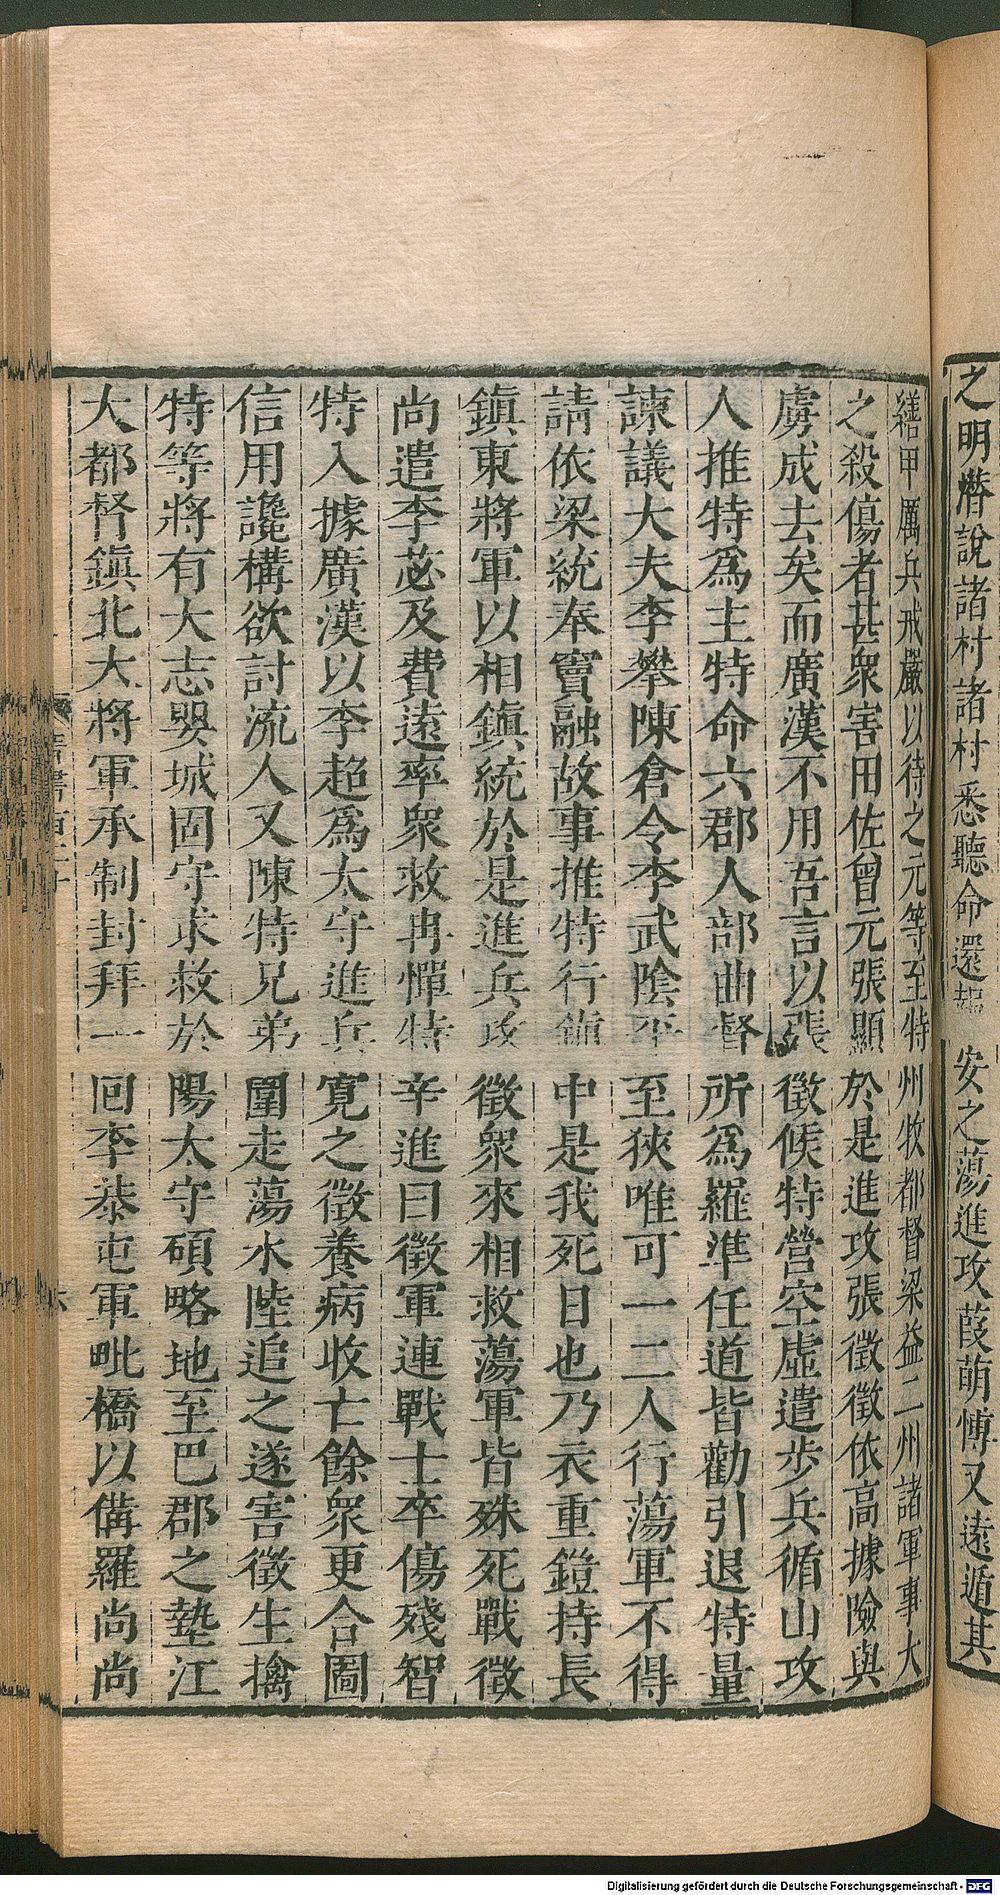 之明潛說諸村諸村悉聽命還報
繕甲厲兵戒嚴以待之元等至特
之殺傷者甚衆害田佐曾元張顯
虜成去矣而廣漢不用吾言以張
人推特爲主特命六郡人部曲督
諫議大夫李攀陳倉令李武陰平
請依梁統奉竇融故事推特行鎮
鎮東將軍以相鎮統於是進兵攻
尚遣李苾及費遠率衆救冉憚特
特入據廣漢以李超爲太守進兵
信用讒構欲討流人又陳特兄弟
特等將有大志嬰城固守求救於
大都督鎮北大將軍承制封拜一
安之蕩進攻葭萌愽又遠遁其
州牧都督梁益二州諸軍事大
於是進攻張徵徵依高據險與
徵候特營空虛遣步兵循山攻
所爲羅準任道皆勸引退特量
至狹唯可一二人行蕩軍不得
中是我死日也乃衣重鎧持長
徵衆來相救蕩軍皆殊死戰徵
辛進曰徵軍連戰士卒傷殘智
寛之徵養病收亡餘衆更合圖
圍走蕩水陸追之遂害徵生擒
陽太守碩略地至巴郡之墊江
囘李恭屯軍毗橋以備羅尚尚
晉書百二十
六
Digitalisierung gefördert durch die Deutsche Forschungsgemeinschaft - DFG